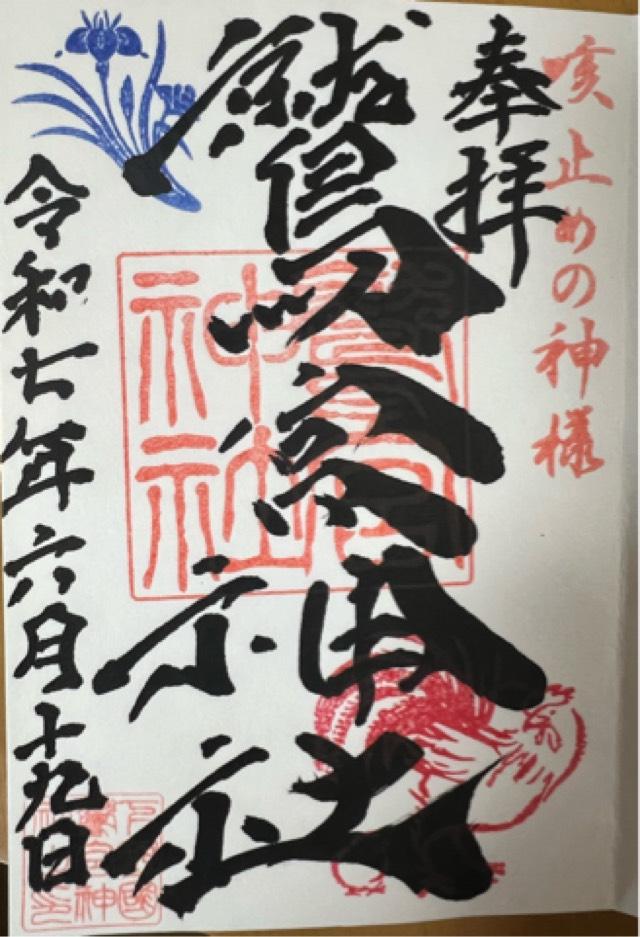 咳止めの神様
奉拝
鷲宮神社
鷲宮
神社
令和七年六月十九日